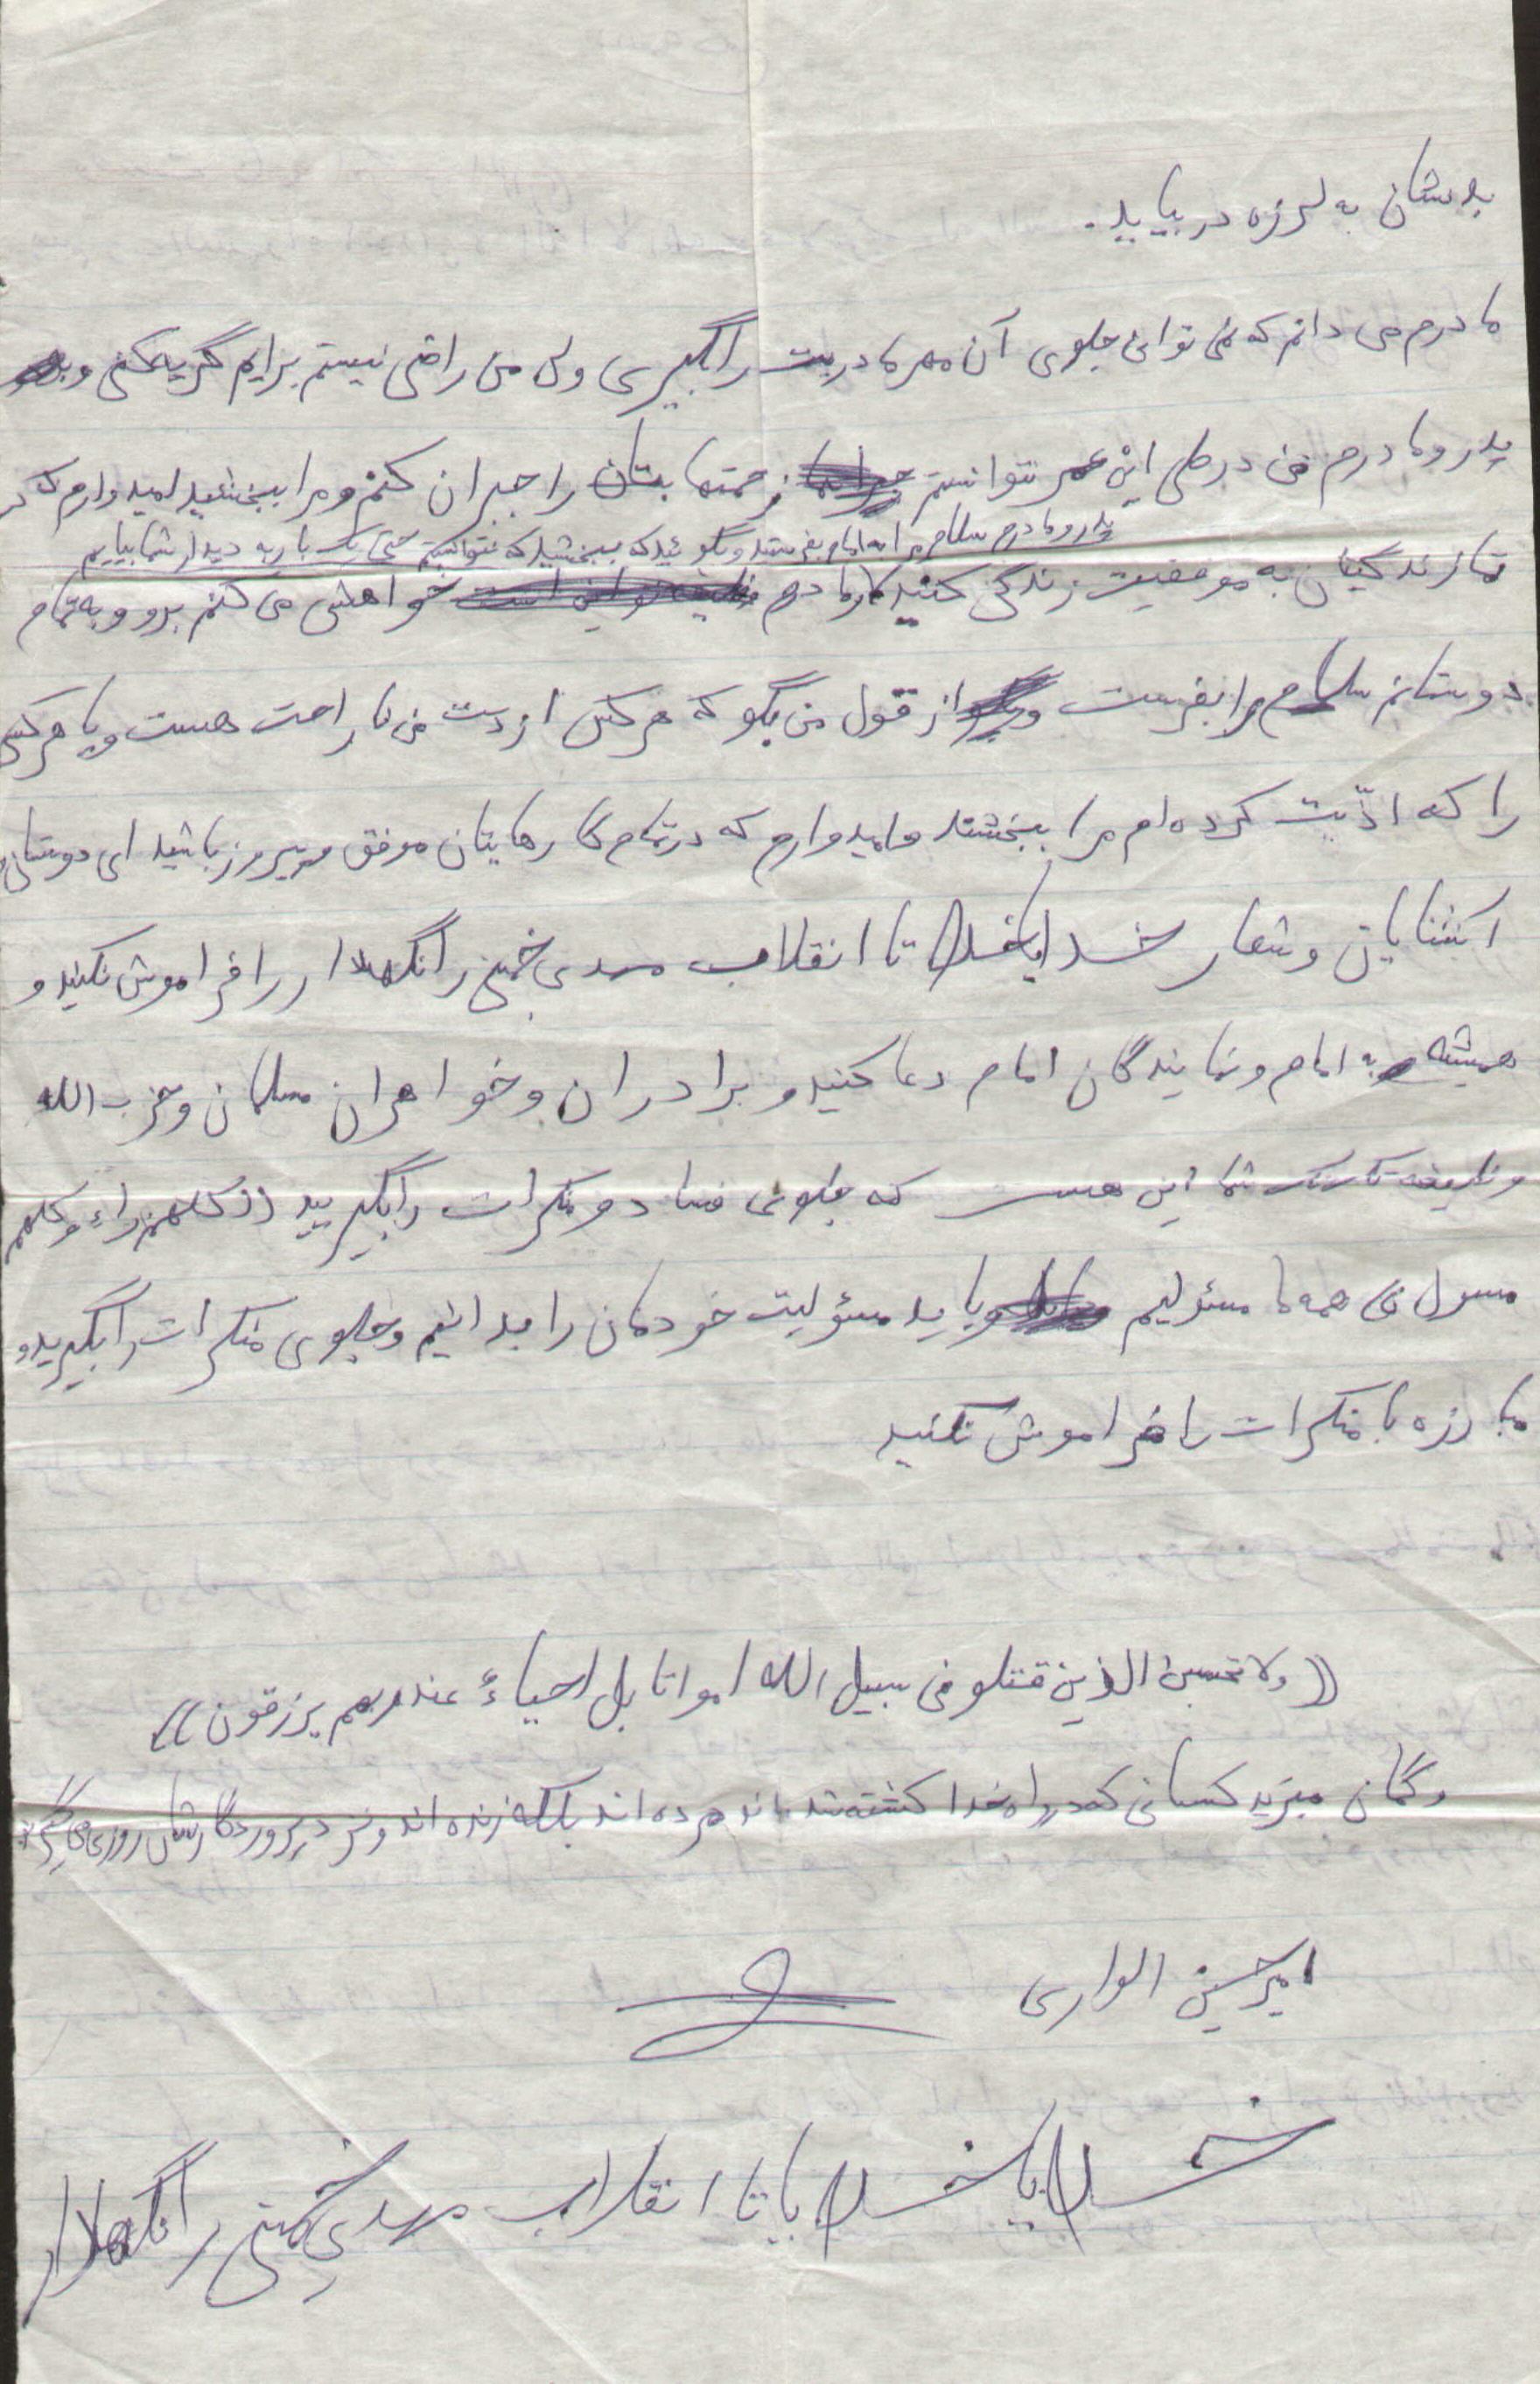 بدنشان به لرزه در بیاید.
مادرم می دانم که نمی توانی جلوی آن مهر مادریت را بگیری ولی من راضی نیستم برایم گریه کنی و
پدر و مادرم من در طی این عمر نتوانستم زحمتهایتان را جبران کنم و مرا ببخشید امیدوارم که در
پدر و مادرم سلام مرا به امام بفرستید و بگوئید که ببخشید که نتوانستم حتی یک بار به دیدار شما بیایم
تمام زندگیتان به موفقیت زندگی کنید مادرم خواهش می کنم برو و به تمام
دوستانم سلام مرا بفرست و از قول من بگو که هر کس از دست من ناراحت هست و یا هر کسی
را که اذّیت کرده ام مرا ببخشند و امیدوارم که در تمام کارهایتان موفق و پیروز باشید ای دوستان و
آشنایان و شعار خدایا خدایا تا انقلاب مهدی خمینی را نگهدار را فراموش نکنید و
همیشه به امام و نمایندگان امام دعا کنید و برادران و خواهران مسلمان و حزب الله
وظیفه تک تک شما این هست که جلوی فساد و منکرات را بگیرید ((کلکم راع و کلکم
مسول همه ما مسئولیم و باید مسئولیت خودمان را بدانیم و جلوی منکرات را بگیرید و
مبارزه با منکرات را فراموش نکنید
((ولا تحسبن الذین قتلو فی سبیل الله امواتا بل احیاءٌ عند ربهم یرزقون))
و گمان مبرید کسانی که در راه خدا کشته شده اند مرده اند بلکه زنده اند و نزد پروردگارشان روزی می گیرند
امیر حسین الواری
خدایا خدایا تا انقلاب مهدی خمینی را نگهدار